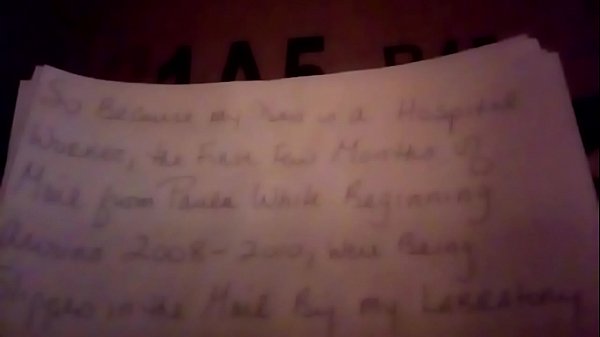 So Because my is a Hospital
Worker, the First Few Months of
Mail from Paula White Beginning
Around 2008-2010, were Being
Slipped in the Mail By my Laboratory